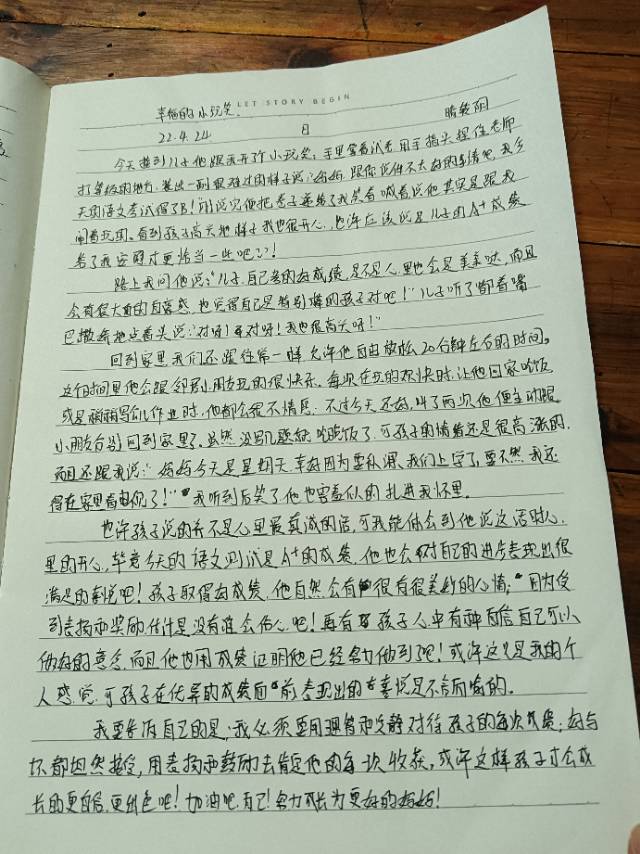 LET STORY BEGIN
幸福的小玩笑
22.4.24 日 晴转阴
今天接到儿子他跟我开了个小玩笑，手里拿着试卷用手指头捏住老师
打等级的地方，装出一副很难过的样子说：妈妈，跟你说件不太好的事情吧，我今
天的语文考试得了B！刚说完便把卷子递给了我笑着喊着说他其实是跟我
闹着玩的。看到孩子高兴地样子我也很开心，也许应该说是儿子的A+成绩
着了我安慰才更恰当一些吧！
路上我问他说："儿子，自己考的好成绩，是不是心里也会是美美哒，而且
会有很大的自豪感，也觉得自己是特别棒的孩子对吧！"儿子听了嘟着嘴
巴撒娇地点着头说："对呀！对呀！我也很高兴呀！"
回到家里我们还跟往常一样允许他自由放松20分钟左右的时间。
这个时间里他会跟邻居小朋友玩的很快乐，每次在玩的很快时，让他回家吃饭
或是稍稍写会儿作业时，他都会很不情愿，不过今天还好，叫了两次他便主动跟
小朋友告别回到家里了，虽然没那么愿意吃饭了，可孩子的情绪还是很高涨的，
而且还跟我说："妈妈今天是星期天，幸好因为要补课，我们上学了，要不然我还
得在家里看电视了！"我听到后笑了他也害羞似的扎进我怀里。
也许孩子说的并不是心里最真诚的话，可我能体会到他说这话时心
里的开心，毕竟今天的语文测试是A+的成绩，他也会对自己的进步表现出很
满足的喜悦吧！孩子取得好成绩，他自然会有很有很美妙的心情；因为受
到表扬和奖励，估计是没有谁会伤心吧！再有孩子人中有种自信自己可以
做好的意念，而且他也用成绩证明他已经努力做到了吧！或许这只是我的个
人感觉，可孩子在优异的成绩面前表现出的喜悦是不言而喻的。
我要告诉自己的是，我必须要用理智和冷静对待孩子的每次成绩；好与
坏都坦然接受，用表扬和鼓励去肯定他的每一次收获，或许这样孩子才会成
长的更自信，更出色吧！加油吧，自己！努力成长为更好的妈妈！